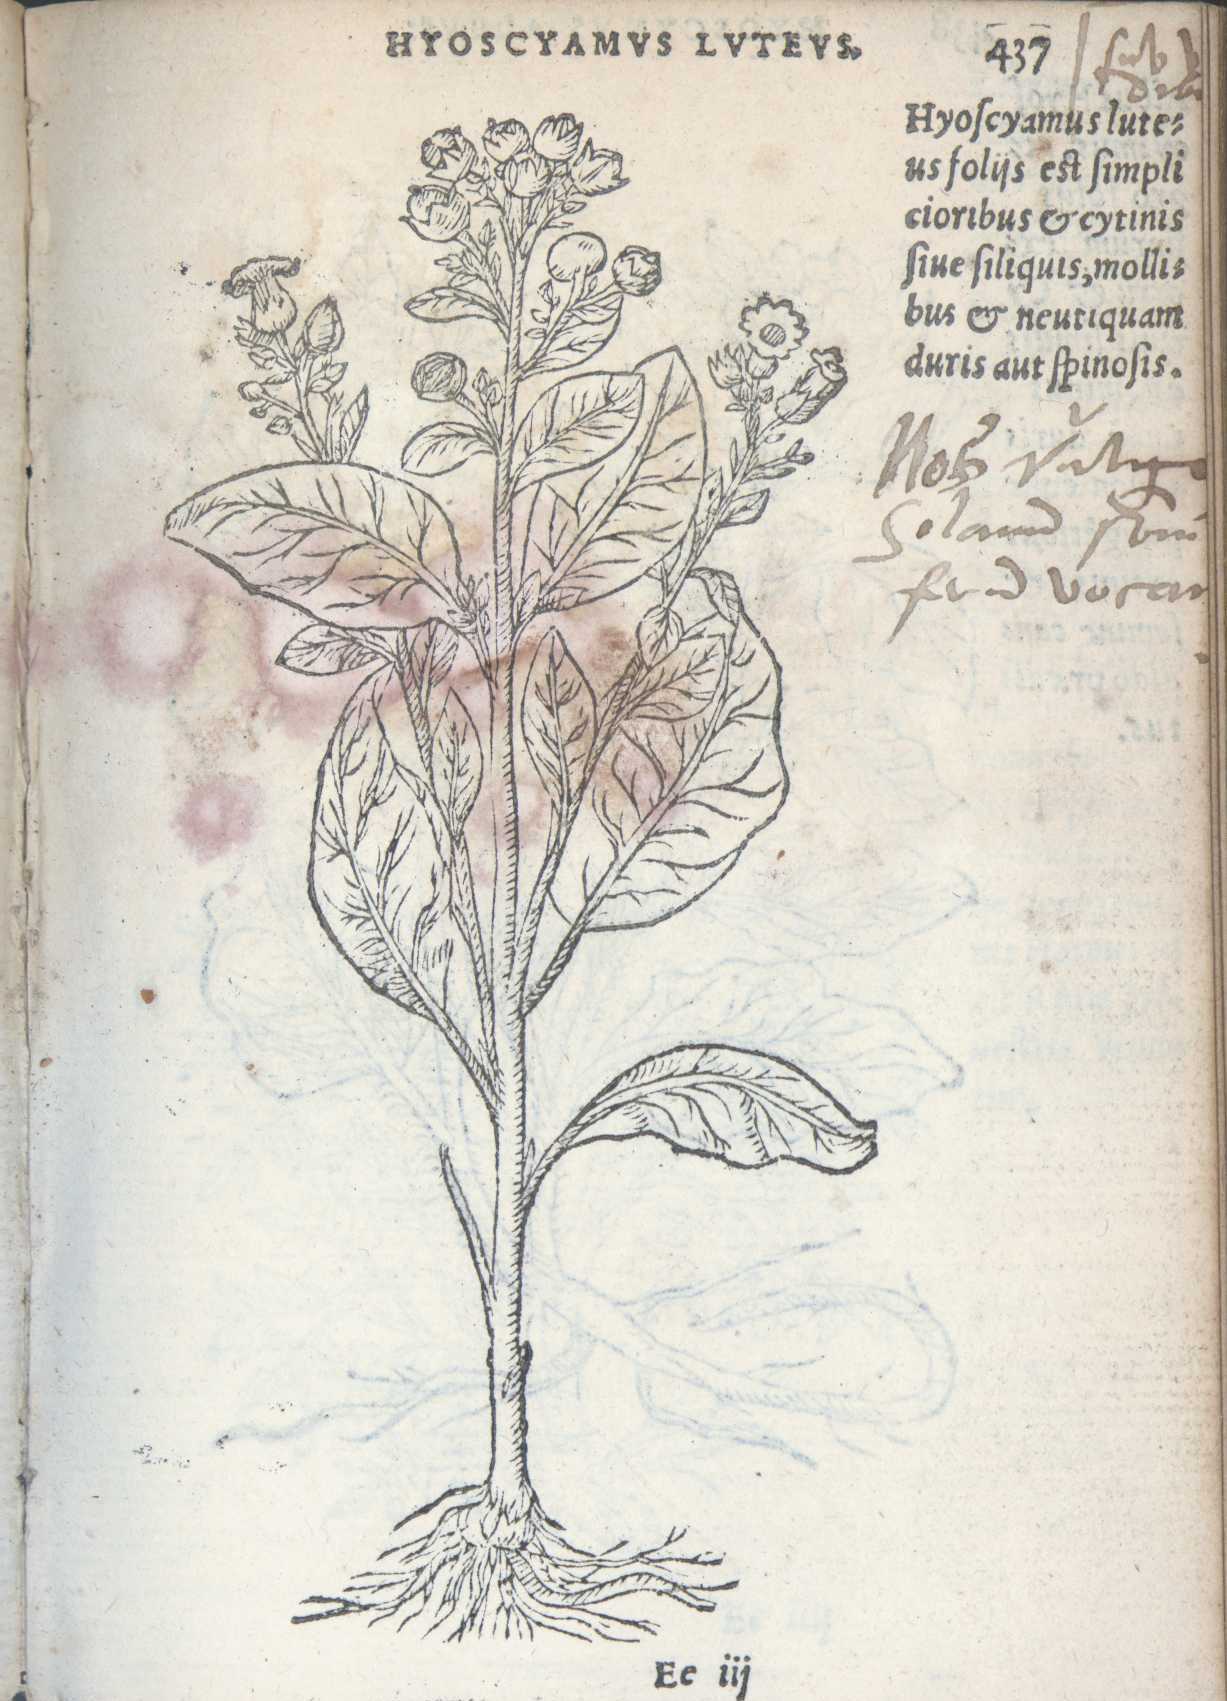 HYOSCYAMVS LVTEVS.
437
sub
Hyoſcyamus lute-
us folijs est ſimpli
cioribus & cytinis
ſiue ſiliquis, molli-
bus & neutiquam
duris aut ſpinoſis.
Solanū
vocant
Ee iij